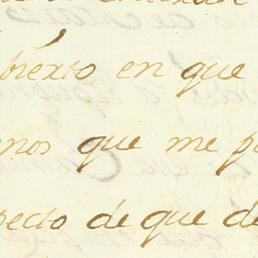 bréxto en que
nos que me p
pecto de que de